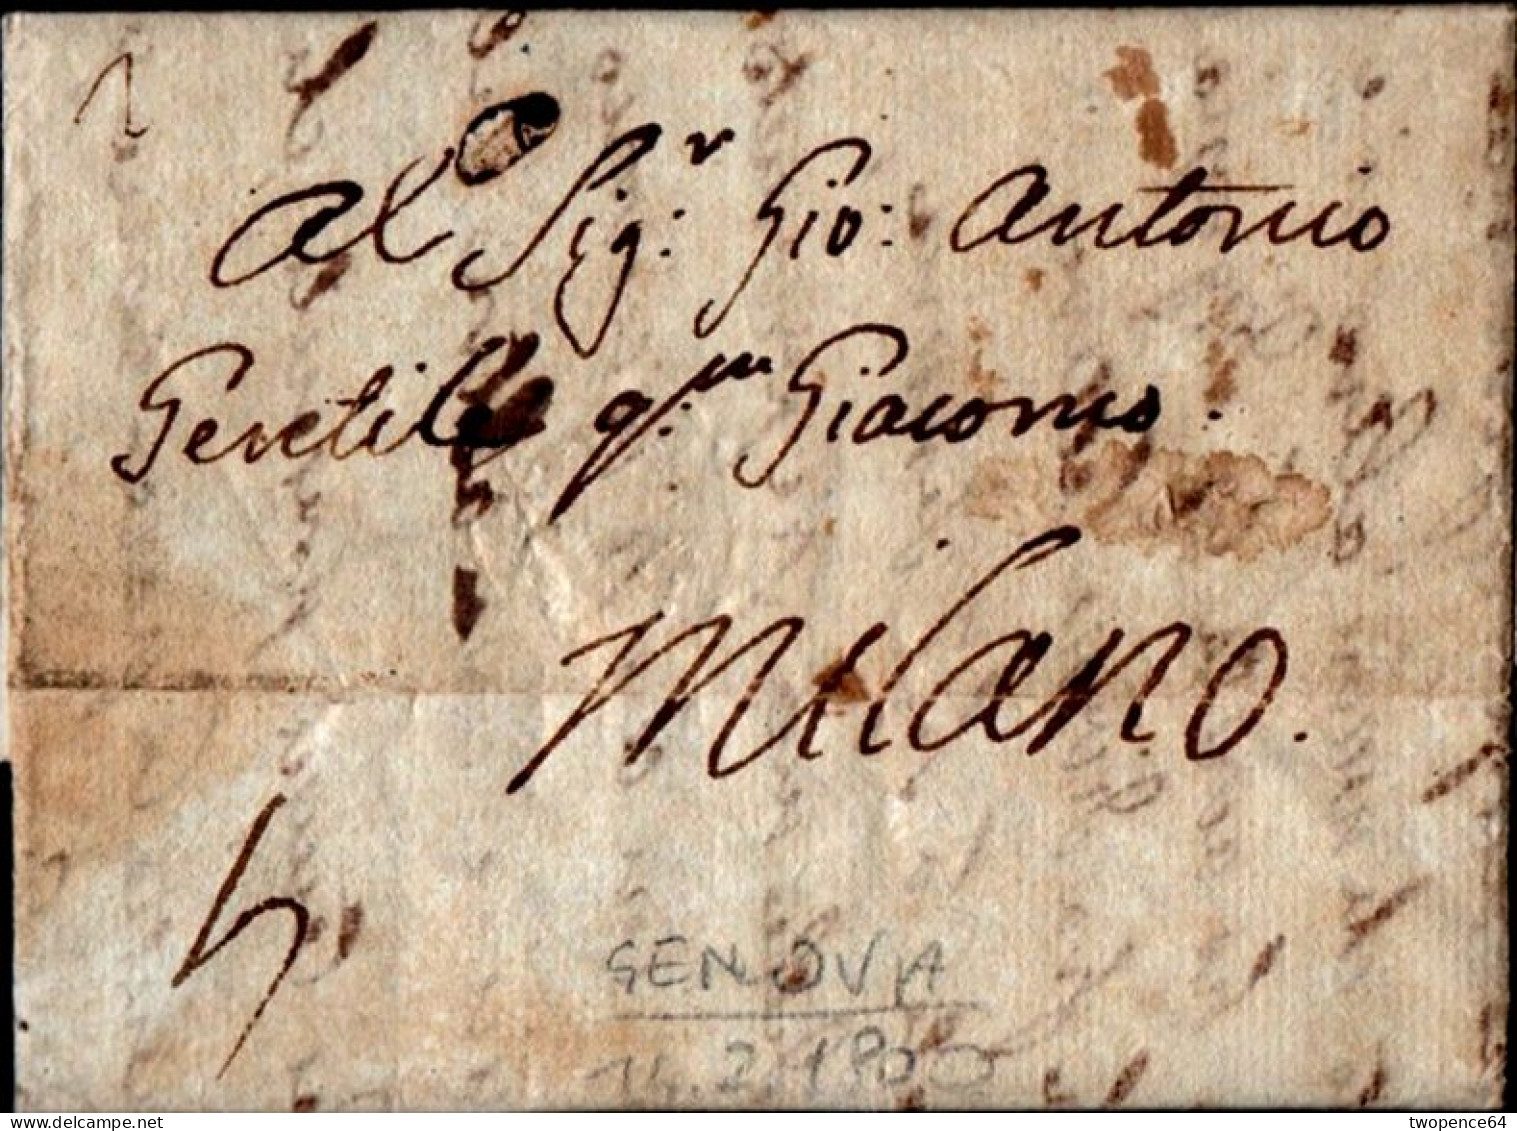 Al Sig.r Gio: Antonio
Gentile q.m Giacomo.
Milano.
GENOVA
14.2.1800
delcampe.net
twopence64